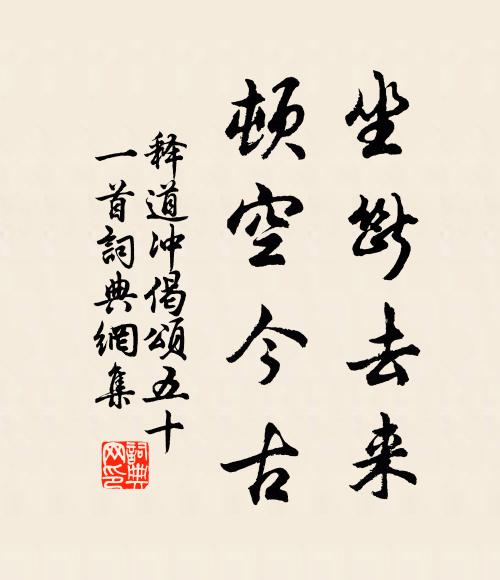 坐断去来
顿空今古
释道冲偈頌五十
一首詞典網集
詞典
网印